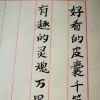 好看的皮囊千篇
有趣的灵魂万里